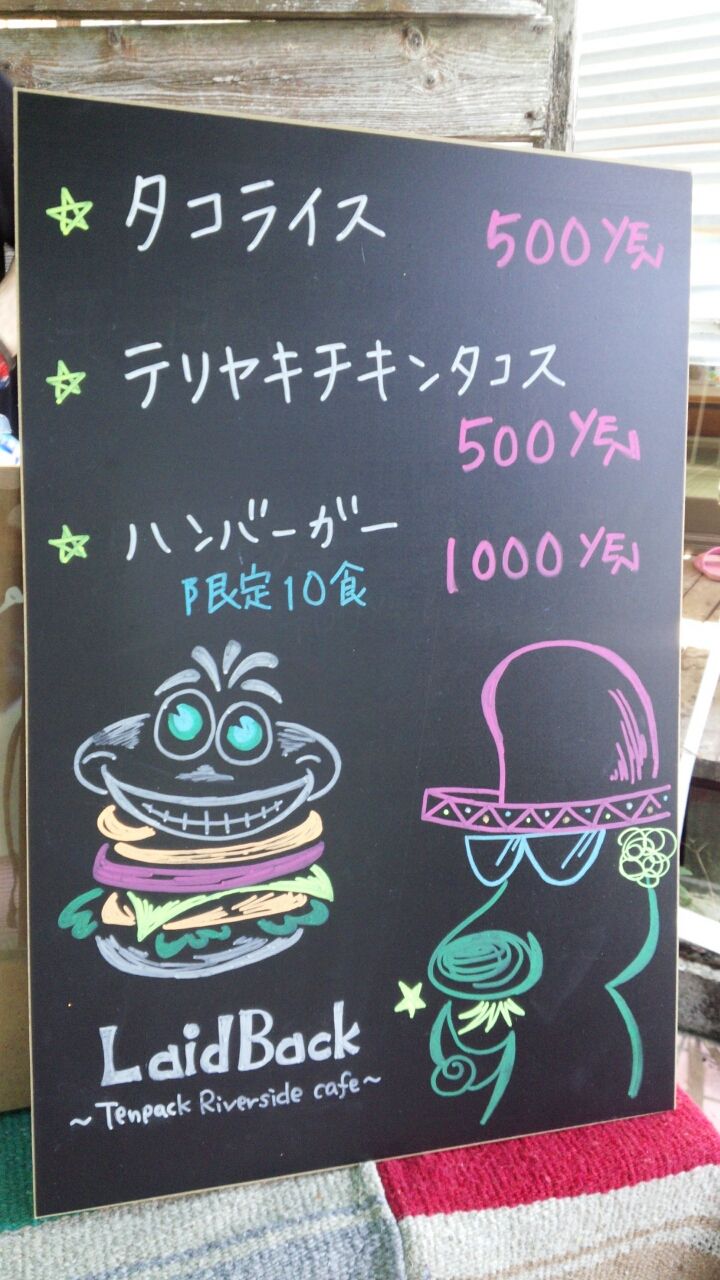 ☆ タコライス 500 YEN
☆ テリヤキチキンタコス
500 YEN
☆ ハンバーガー 1000 YEN
限定10食
LaidBack
~Tenpack Riverside cafe~